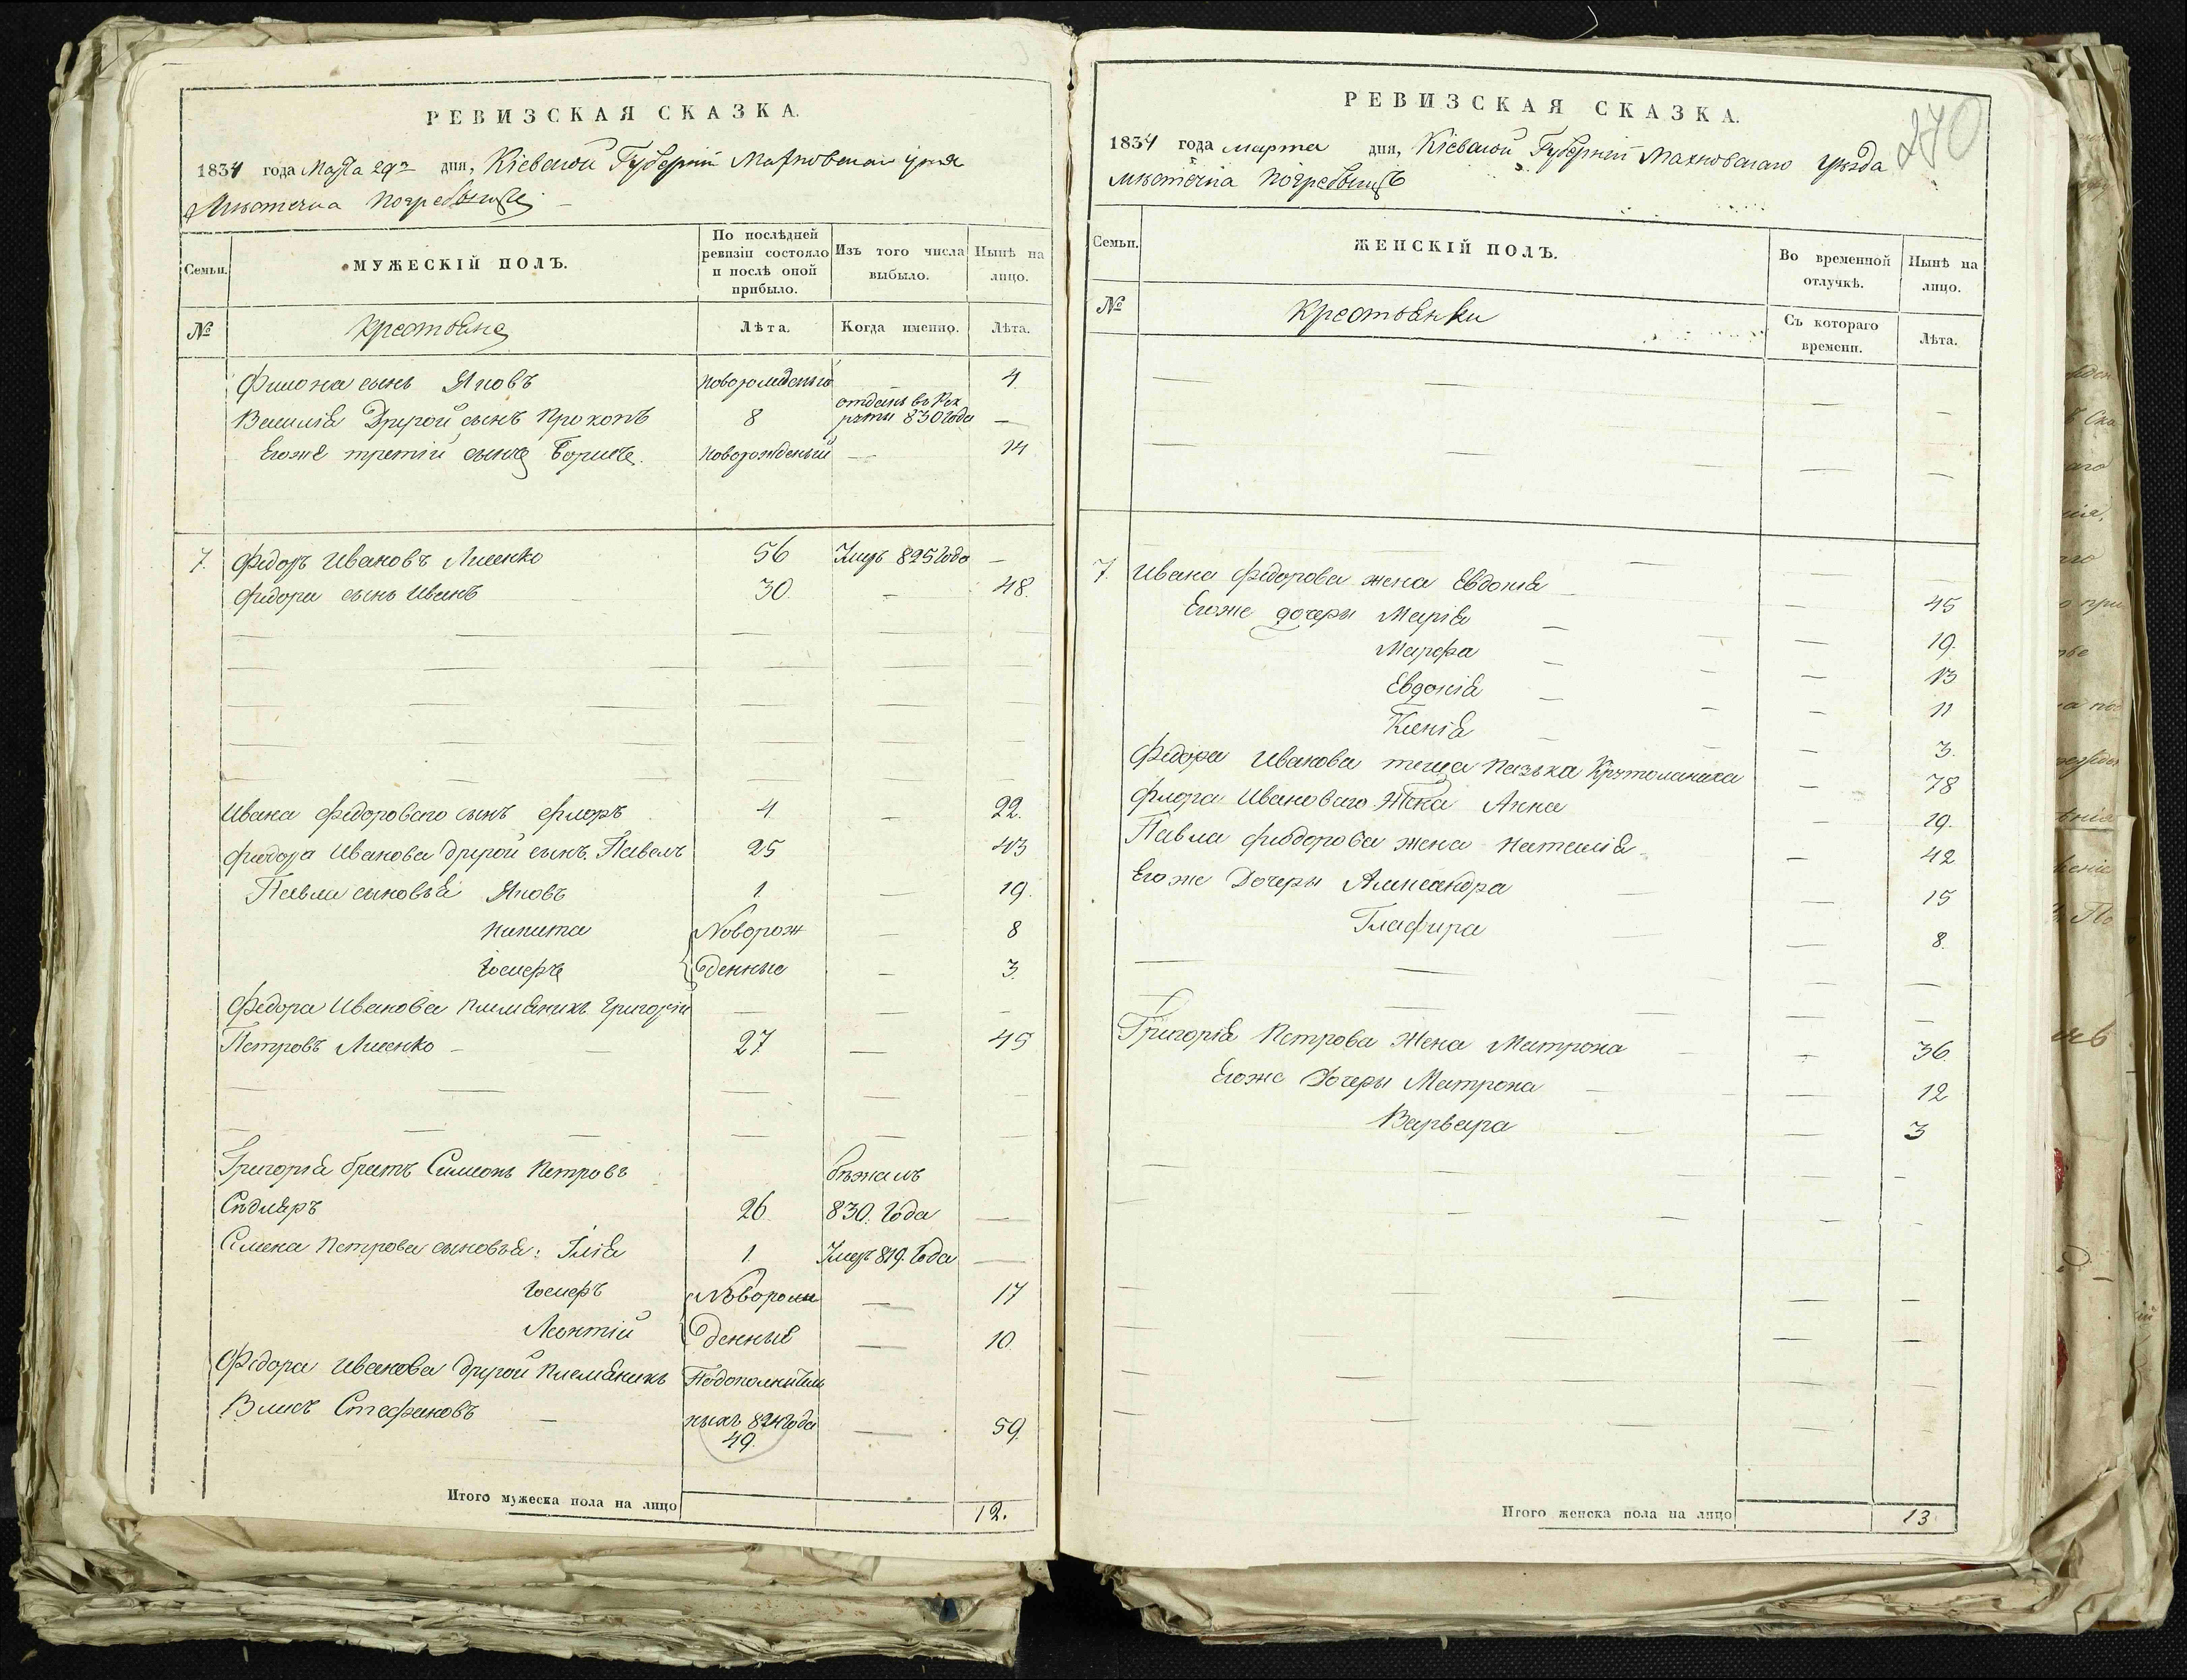 РЕВИЗСКАЯ СКАЗКА.
1834 года Марта 29го дня, Кіевской Губерніи Махновскаго уезда
Мѣстечка Погребыщъ
Семьи. МУЖЕСКІЙ ПОЛЪ. По послѣдней ревизіи состояло и послѣ оной прибыло. Изъ того числа выбыло. Нынѣ на лицо.
№ Крестьяне Лѣта. Когда именно. Лѣта.
Филона сынъ Яковъ новорожденый 4
Василія Другой сынъ Прокопъ 8 отданъ въ рекруты 830 Года —
Егоже третій сынъ Борисъ новорожденый — 14
7. Федоръ Ивановъ Лисенко 56 Умеръ 825 Года —
Федора сынъ Иванъ 30. — 48.
Ивана Федороваго сынъ Флоръ 4 — 22.
Федора Иванова Другой сынъ Павелъ 25 43
Павла сыновья Яковъ 1. — 19.
Никита Новорож — 8
Іосифъ денные — 3.
Федора Иванова племяникъ Григорій — — —
Петровъ Лисенко — 27. — 45
Григорія братъ Симеонъ Петровъ бѣжалъ
26. 830. Года —
Семена Петрова сыновья: Ілія 1. Умеръ 819. Года —
Іосифъ Новорож — 17
Леонтій денные — 10.
Федора Иванова Другой племяникъ По дополнитель
Власъ Стефановъ — нымъ 824 Года — 59.
49.
Итого мужеска пола на лицо 12.
РЕВИЗСКАЯ СКАЗКА.
270
1834 года марта дня, Кіевской Губерніи Махновскаго уѣзда
мѣстечка Погребыщъ
Семьи. ЖЕНСКІЙ ПОЛЪ. Во временной отлучкѣ. Нынѣ на лицо.
№ Крестьянки Съ котораго времени. Лѣта.
7. Ивана Федорова жена Евдокія — 45
Егоже дочеры Марія — 19.
Марфа — 13
Евдокія — 11
Ксенія — 3.
Федора Иванова теща Пазька — 78
Флора Ивановаго жена Анна 19.
Павла Фіодорова жена Наталія — 42
Егоже Дочеры Александра — 15
Глафира — 8.
Григорія Петрова Жена Матрона — 36
Егоже Дочеры Матрона — 12
Варвара — 3
Итого женска пола на лицо 13